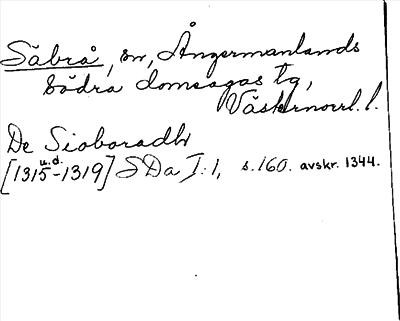 Säbrå, sn, Ångermanlands
södra domsagas tg,
Västernorrl. l.
De Sioboradh
u.d.
[1315-1319] SDa I:1, s. 160. avskr. 1344.